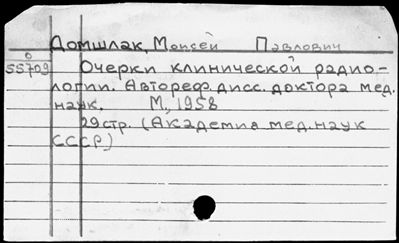 Домшлак, Моисей Павлович
о
55709 Очерки клинической радио-
логии. Автореф. дисс. доктора мед.
наук. М., 1958
29 стр. (Академия мед. наук
СССР)